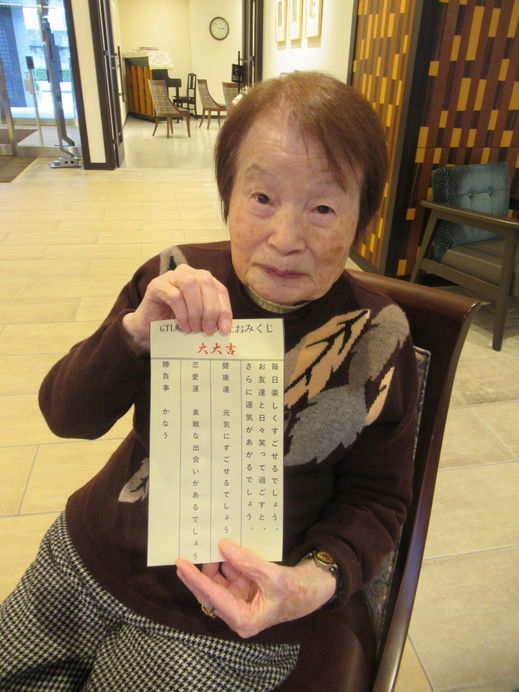 GTL おみくじ
大大吉
毎日楽しくすごせるでしょう。
お友達と日々笑って過ごすと、
さらに運気があがるでしょう。
健康運 元気にすごせるでしょう
恋愛運 素敵な出会いがあるでしょう
勝負事 かなう